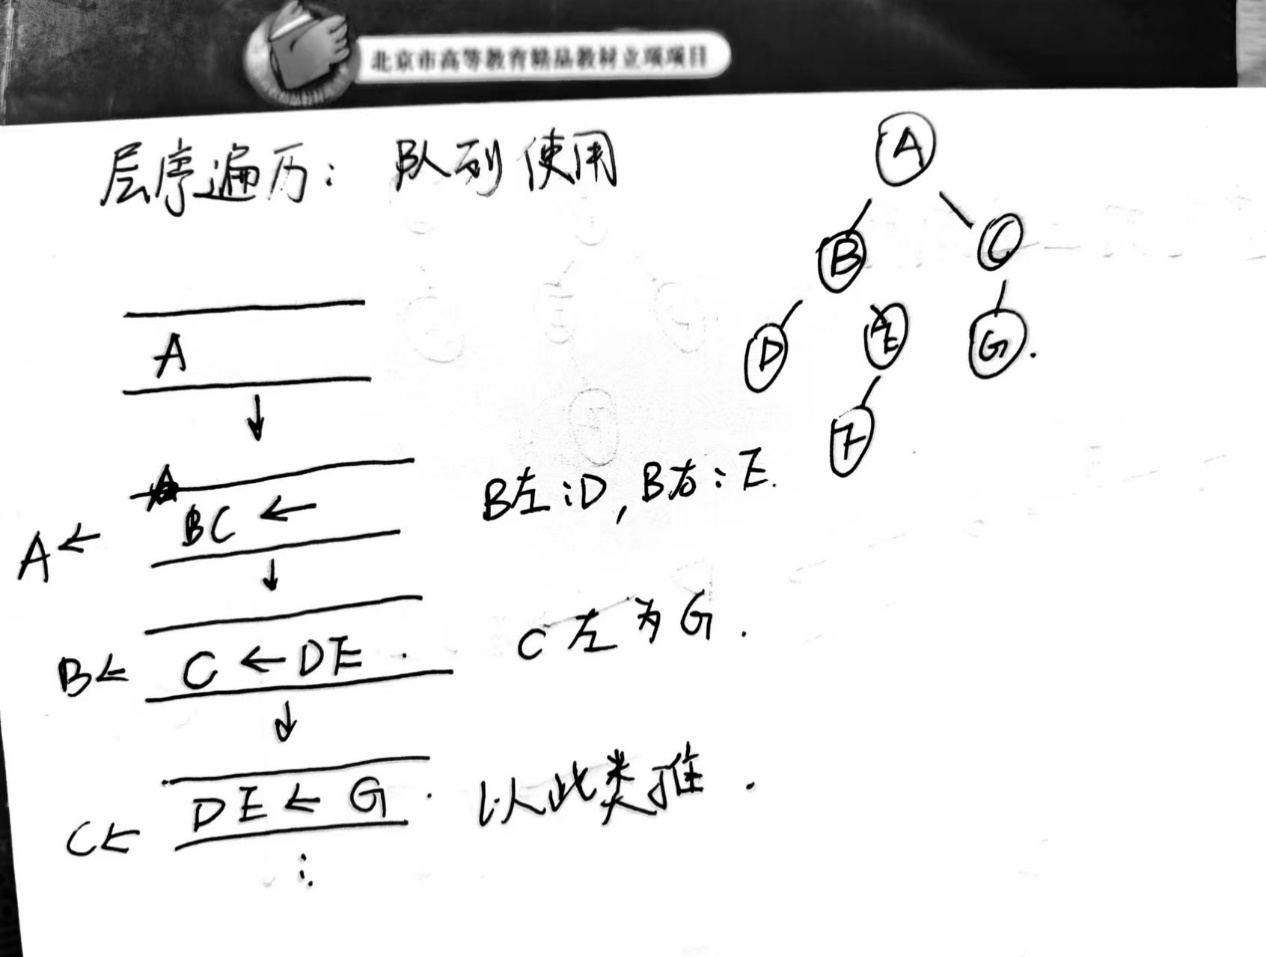 北京市高等教育精品教材立项项目
层序遍历：队列使用
A
B
C
D
E
G.
F
A
A← BC ←
B左：D，B右：E.
B← C ← DE .
C左为G.
C← DE ← G .
以此类推.